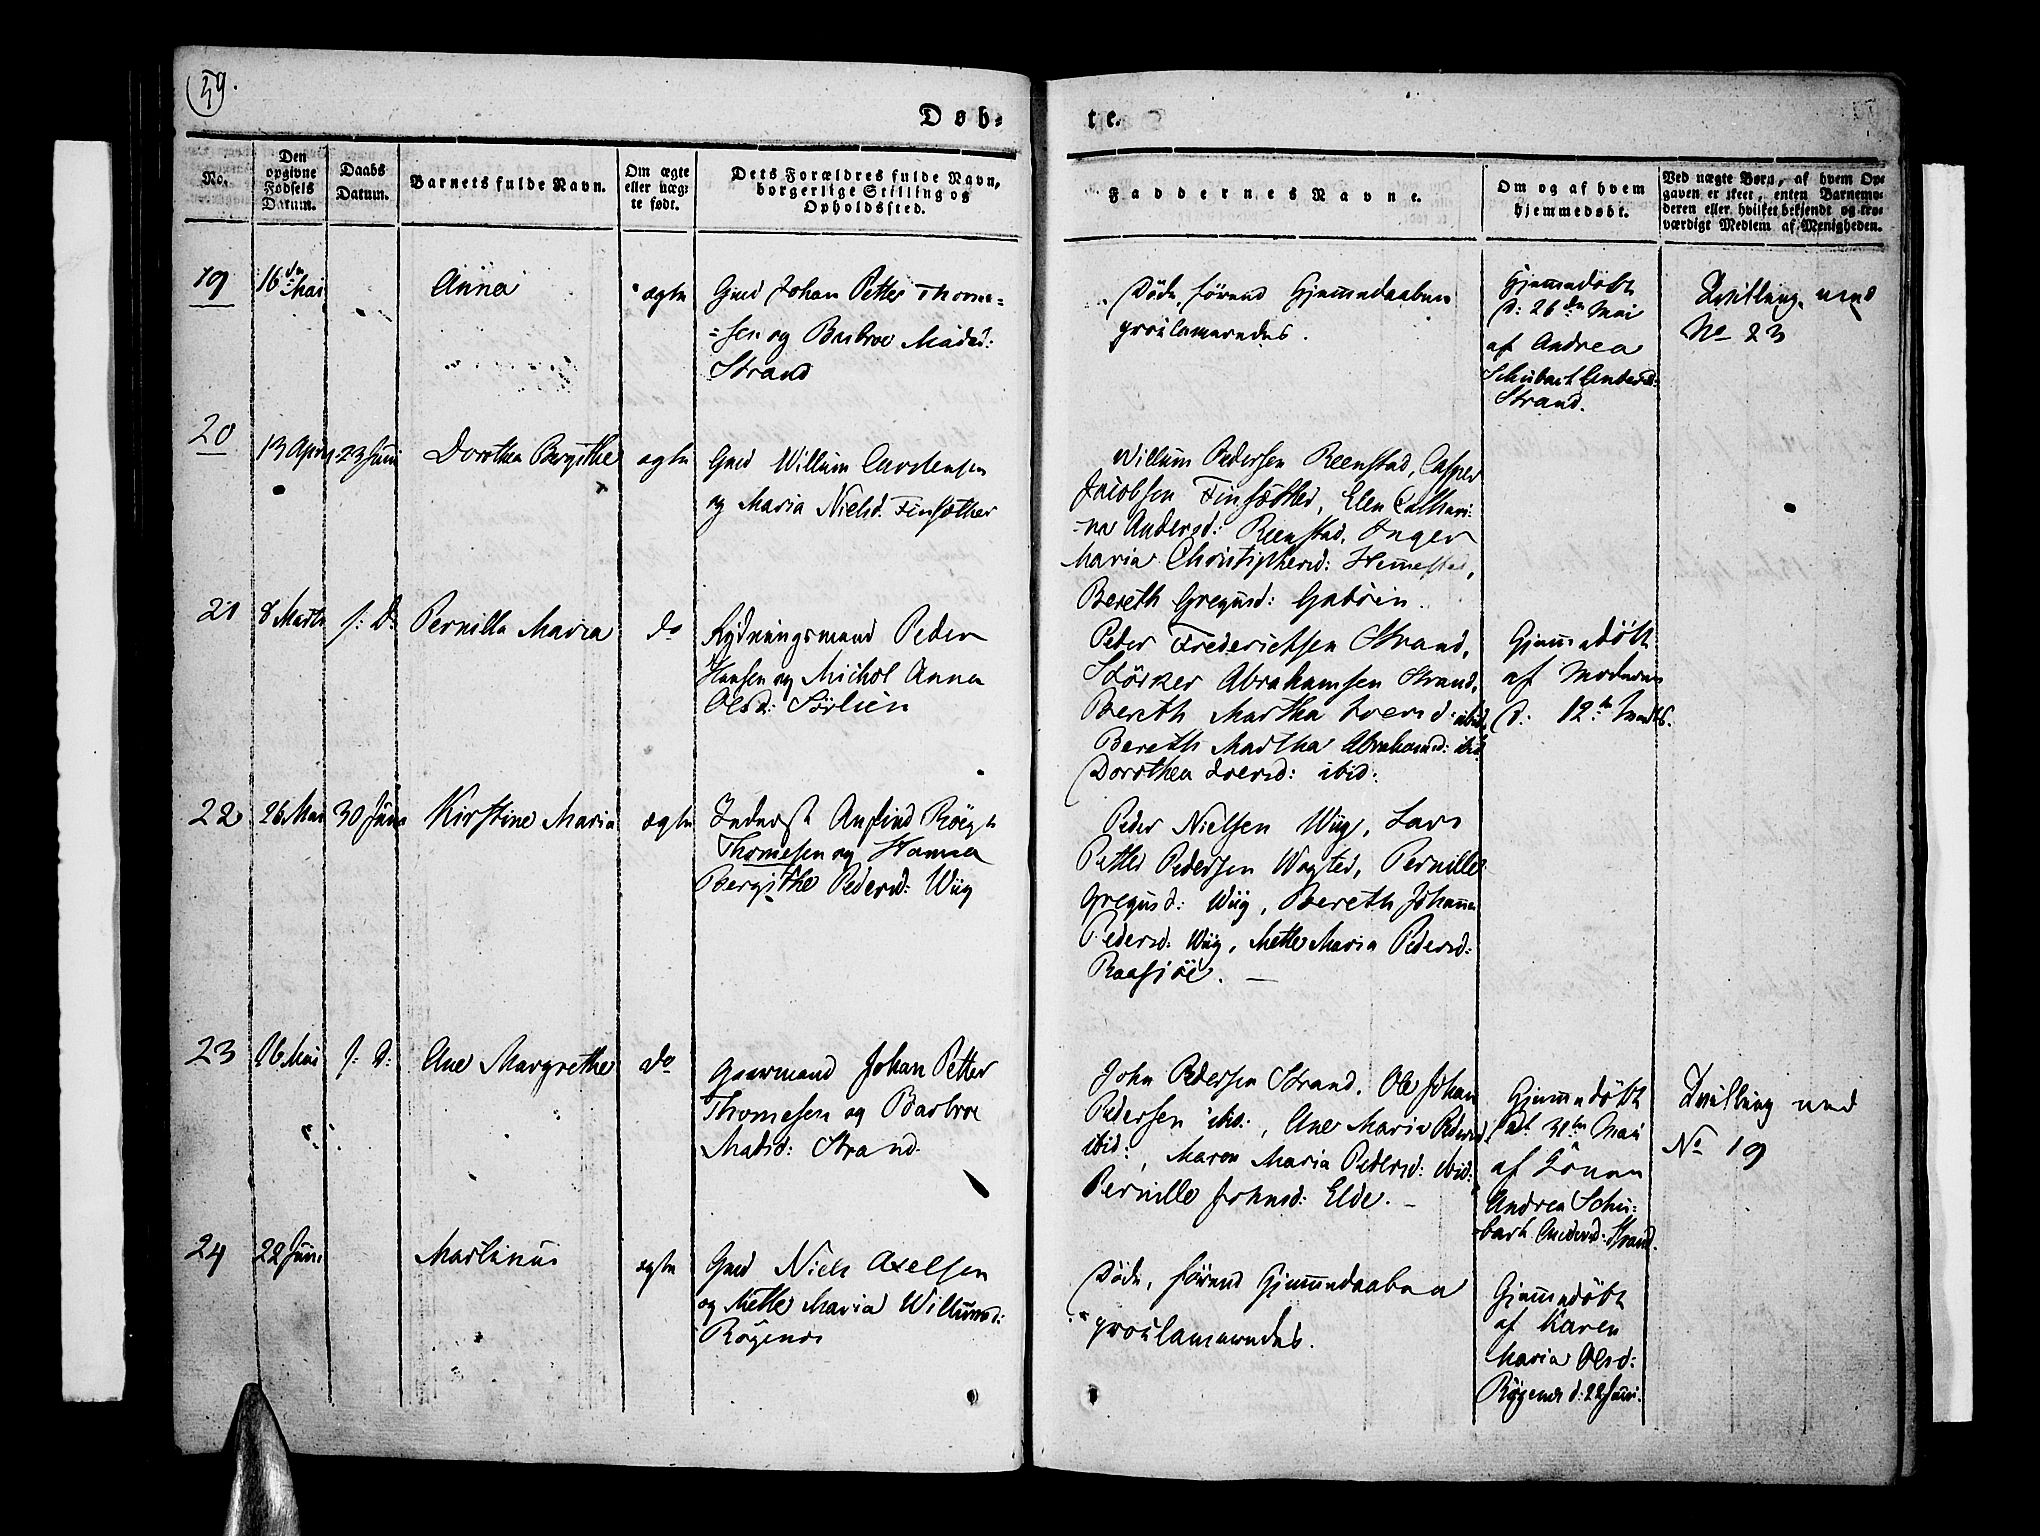 59.
Døb-
te.
No.
Den
opgivne
Fødsels
Datum.
Daabs
Datum.
Barnets fulde Navn.
Om ægte
eller uæg-
te født.
Dets Forældres fulde Navn,
borgerlige Stilling og
Opholdssted.
Faddernes Navne.
Om og af hvem
hjemmedøbt.
Ved uægte Børn, af hvem Op-
gaven er skeet, enten Barnemo-
deren eller hvilket bekjendt og tro-
værdigt Medlem af Menigheden.
19
16 Mai
Anna
ægte
Gmd Johan Petter Thome-
-sen og Barbroe Madsd:
Strand
Døde, førend Hjemmedaaben
proclameredes.
Hjemmedøbt
d: 26de Mai
af Andrea
Schubart
Strand.
Tvilling med
No 23
20
13 April
23 Juni
Dorothea Bergithe
ægte
Gmd Willum Carstensen
og Maria Nielsd. Finsæther
Willum Pedersen Reenstad, Casper
Jacobsen Finsæther, Elen Cathari-
-na Andersd: Reenstad, Inger
Maria Christophersd: Hemestad,
Bereth Gregusd:
21
8 Marts
s: D:
Pernilla Maria
do
Rydningsmand Peder
Hansen og Michol Anna
Olsd: Sørlien
Peder Frederichsen Strand,
Størker Abrahamsen Strand,
Bereth Martha Iversd: ibid,
Bereth Martha Abrahamsd: ibid
Dorothea Iversd: ibid.
Hjemmedøbt
af Moderen
d: 12te Marts.
22
26 Mai
30 Juni
Kirstine Maria
ægte
Inderst Anfind Røeg
Thomesen og Hanna
Bergithe Pedersd: Wiig
Peder Nielsen Wiig, Lars
Petter Pedersen Wogsted, Pernille
Gregusd: Wiig, Bereth Johanna
Pedersd: Wiig, Mette Maria Pedersd:
Raasjøe.
23
16 Mai
s: D:
Ane Margrethe
do
Gaarmand Johan Petter
Thomesen og Barbroe
Madsd: Strand.
John Pedersen Strand, Ole Johan
Pedersen ibid:, Ane Maria Pedersd
ibid:, Maren Maria Pedersd: ibid:
Pernille Johnsd: Elde.
Hjemmedøbt
d. 31te Mai
af
Andrea Schu-
bart Andersd: Strand.
Tvilling med
No 19
24
22 Juni
Martinus
ægte
Gmd Niels Axelsen
og Mette Maria Willumsd:
Røgenes
Døde, førend Hjemmedaaben
proclameredes.
Hjemmedøbt
af Karen
Maria Olsd:
Røgenes d: 22 Juni.